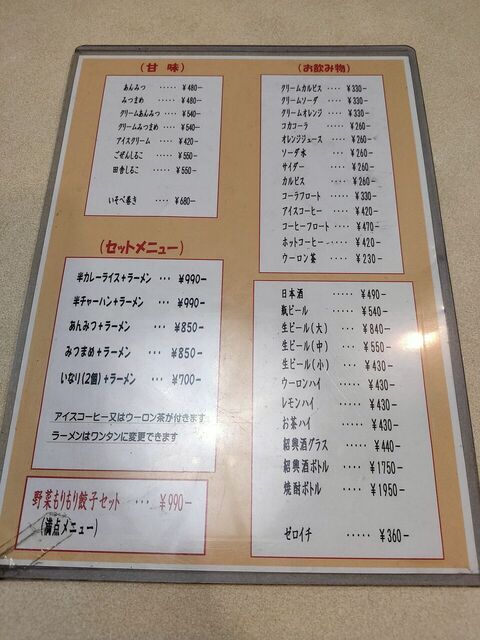 (甘 味)
あんみつ ····· ¥480-
みつまめ ····· ¥480-
クリームあんみつ ··· ¥540-
クリームみつまめ ··· ¥540-
アイスクリーム ···· ¥420-
ごぜんしるこ ···· ¥550-
田舎しるこ ···· ¥550-
いそべ巻き ···· ¥680-
(セットメニュー)
半カレーライス+ラーメン ··· ¥990-
半チャーハン+ラーメン ··· ¥990-
あんみつ+ラーメン ··· ¥850-
みつまめ+ラーメン ··· ¥850-
いなり(2個)+ラーメン ··· ¥700-
アイスコーヒー又はウーロン茶が付きます
ラーメンはワンタンに変更できます
野菜もりもり餃子セット ··· ¥990-
(満点メニュー)
(お飲み物)
クリームカルピス ··· ¥330-
クリームソーダ ··· ¥330-
クリームオレンジ ··· ¥330-
コカコーラ ···· ¥260-
オレンジジュース ···· ¥260-
ソーダ水 ···· ¥260-
サイダー ···· ¥260-
カルピス ···· ¥260-
コーラフロート ···· ¥330-
アイスコーヒー ···· ¥420-
コーヒーフロート ···· ¥470-
ホットコーヒー ···· ¥420-
ウーロン茶 ···· ¥230-
日本酒 ····· ¥490-
瓶ビール ····· ¥540-
生ビール(大) ··· ¥840-
生ビール(中) ··· ¥550-
生ビール(小) ··· ¥430-
ウーロンハイ ···· ¥430-
レモンハイ ···· ¥430-
お茶ハイ ···· ¥430-
紹興酒グラス ···· ¥440-
紹興酒ボトル ···· ¥1750-
焼酎ボトル ···· ¥1950-
ゼロイチ ····· ¥360-